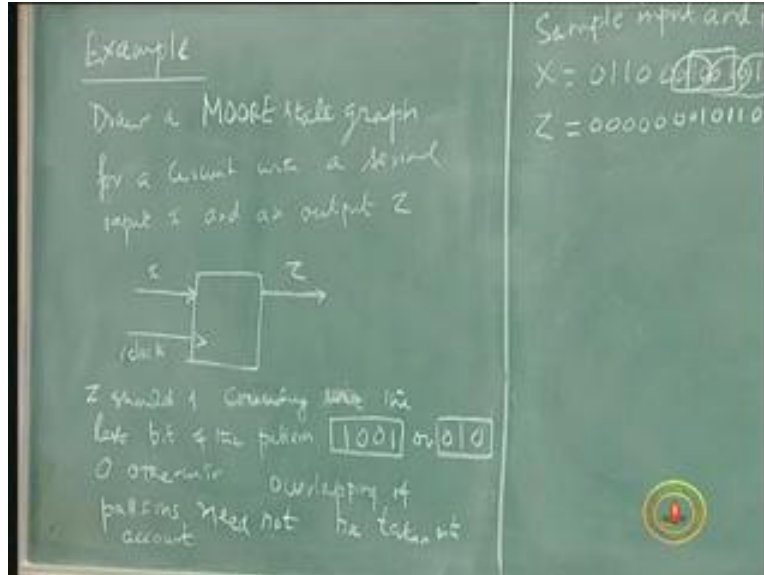 Example
Draw a MOORE state graph
for a circuit with a serial
input x and an output Z
x
Z
clock
Z should 1 coinciding with the
last bit of the pattern 1001 or 010
0 otherwise overlapping of
patterns need not be taken into
account
Sample input and
X = 01100100101
Z = 000000010110